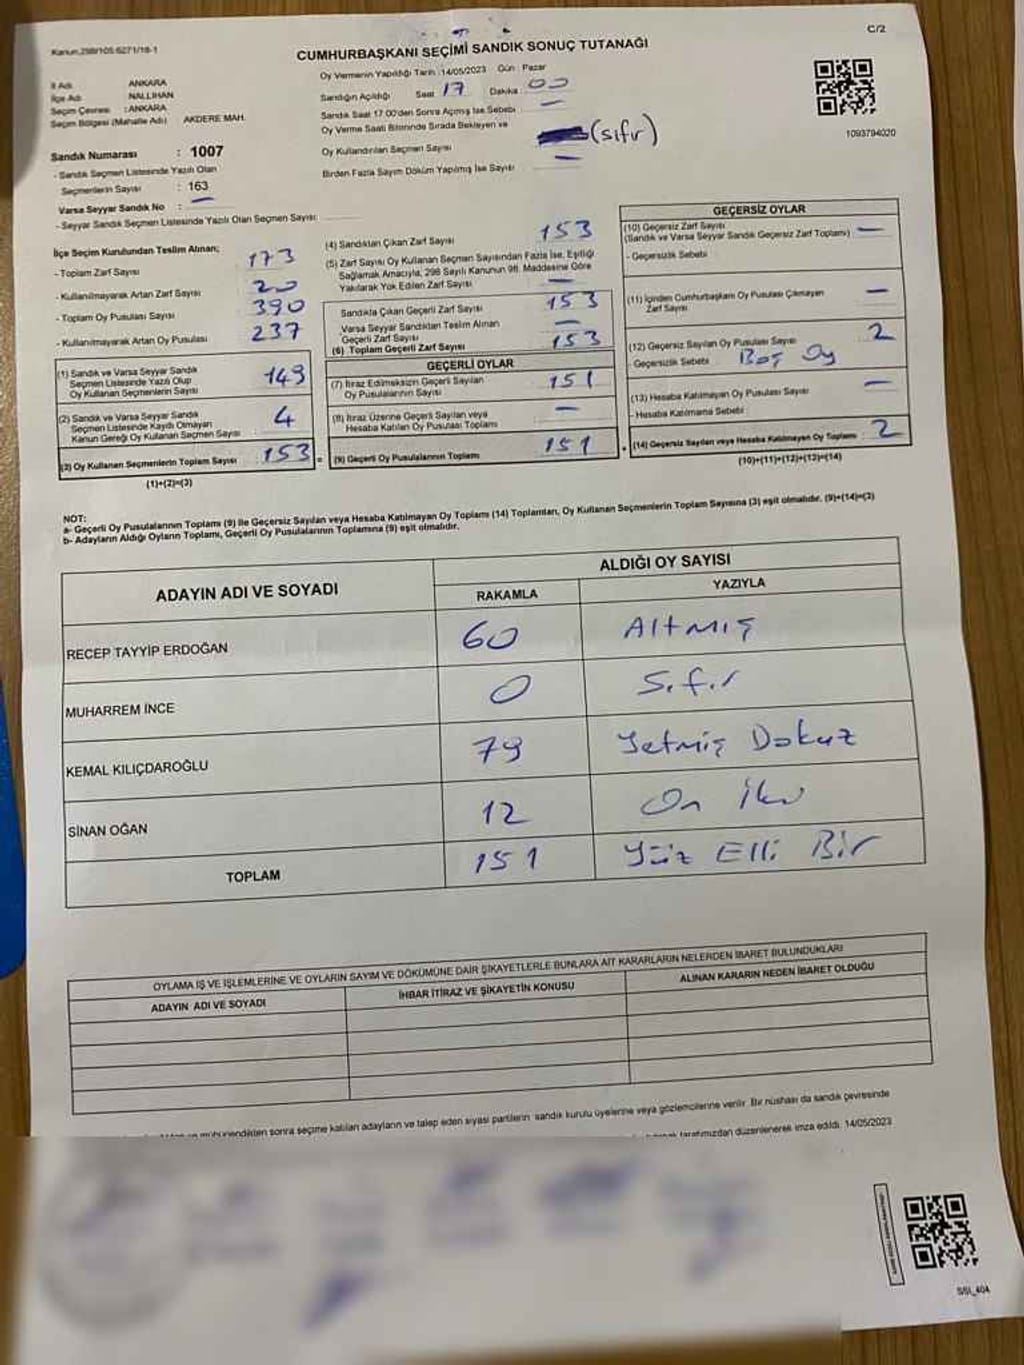 Kanun:298/105 6271/18-1
C/2
CUMHURBAŞKANI SEÇİMİ SANDIK SONUÇ TUTANAĞI
İl Adı : ANKARA
İlçe Adı : NALLIHAN
Seçim Çevresi : ANKARA
Seçim Bölgesi (Mahalle Adı) : AKDERE MAH.
Oy Vermenin Yapıldığı Tarih :14/05/2023 Gün : Pazar
Sandığın Açıldığı Saat 17 Dakika : 00
Sandık Saat 17:00'den Sonra Açılmış İse Sebebi : —
Oy Verme Saati Bitiminde Sırada Bekleyen ve
Oy Kullandırılan Seçmen Sayısı (sıfır)
Birden Fazla Sayım Döküm Yapılmış İse Sayısı —
1093794020
Sandık Numarası : 1007
- Sandık Seçmen Listesinde Yazılı Olan
Seçmenlerin Sayısı : 163
Varsa Seyyar Sandık No : —
- Seyyar Sandık Seçmen Listesinde Yazılı Olan Seçmen Sayısı:
İlçe Seçim Kurulundan Teslim Alınan;
- Toplam Zarf Sayısı 173
- Kullanılmayarak Artan Zarf Sayısı 20
- Toplam Oy Pusulası Sayısı 390
- Kullanılmayarak Artan Oy Pusulası 237
(1) Sandık ve Varsa Seyyar Sandık
Seçmen Listesinde Yazılı Olup
Oy Kullanan Seçmenlerin Sayısı 149
(2) Sandık ve Varsa Seyyar Sandık
Seçmen Listesinde Kaydı Olmayan
Kanun Gereği Oy Kullanan Seçmen Sayısı 4
(3) Oy Kullanan Seçmenlerin Toplam Sayısı 153
(1)+(2)=(3)
(4) Sandıktan Çıkan Zarf Sayısı 153
(5) Zarf Sayısı Oy Kullanan Seçmen Sayısından Fazla İse, Eşitliği
Sağlamak Amacıyla, 298 Sayılı Kanunun 98. Maddesine Göre
Yakılarak Yok Edilen Zarf Sayısı —
Sandıkta Çıkan Geçerli Zarf Sayısı 153
Varsa Seyyar Sandıktan Teslim Alınan
Geçerli Zarf Sayısı —
(6) Toplam Geçerli Zarf Sayısı 153
GEÇERLİ OYLAR
(7) İtiraz Edilmeksizin Geçerli Sayılan
Oy Pusulalarının Sayısı 151
(8) İtiraz Üzerine Geçerli Sayılan veya
Hesaba Katılan Oy Pusulası Toplamı —
(9) Geçerli Oy Pusulalarının Toplamı 151
GEÇERSİZ OYLAR
(10) Geçersiz Zarf Sayısı
(Sandık ve Varsa Seyyar Sandık Geçersiz Zarf Toplamı) —
- Geçersizlik Sebebi
(11) İçinden Cumhurbaşkanı Oy Pusulası Çıkmayan
Zarf Sayısı —
(12) Geçersiz Sayılan Oy Pusulası Sayısı 2
- Geçersizlik Sebebi Boş Oy
(13) Hesaba Katılmayan Oy Pusulası Sayısı —
- Hesaba Katılmama Sebebi
(14) Geçersiz Sayılan veya Hesaba Katılmayan Oy Toplamı 2
(10)+(11)+(12)+(13)=(14)
NOT:
a- Geçerli Oy Pusulalarının Toplamı (9) ile Geçersiz Sayılan veya Hesaba Katılmayan Oy Toplamı (14) Toplamları, Oy Kullanan Seçmenlerin Toplam Sayısına (3) eşit olmalıdır. (9)+(14)=(3)
b- Adayların Aldığı Oyların Toplamı, Geçerli Oy Pusulalarının Toplamına (9) eşit olmalıdır.
ADAYIN ADI VE SOYADI
ALDIĞI OY SAYISI
RAKAMLA YAZIYLA
RECEP TAYYİP ERDOĞAN 60 Altmış
MUHARREM İNCE 0 Sıfır
KEMAL KILIÇDAROĞLU 79 Yetmiş Dokuz
SİNAN OĞAN 12 On İki
TOPLAM 151 Yüz Elli Bir
OYLAMA İŞ VE İŞLEMLERİNE VE OYLARIN SAYIM VE DÖKÜMÜNE DAİR ŞİKAYETLERLE BUNLARA AİT KARARLARIN NELERDEN İBARET BULUNDUKLARI
ADAYIN ADI VE SOYADI İHBAR İTİRAZ VE ŞİKAYETİN KONUSU ALINAN KARARIN NEDEN İBARET OLDUĞU
mühürlendikten sonra seçime katılan adayların ve talep eden siyasi partilerin sandık kurulu üyelerine veya gözlemcilerine verilir. Bir nüshası da sandık çevresinde
tarafımızdan düzenlenerek imza edildi. 14/05/2023